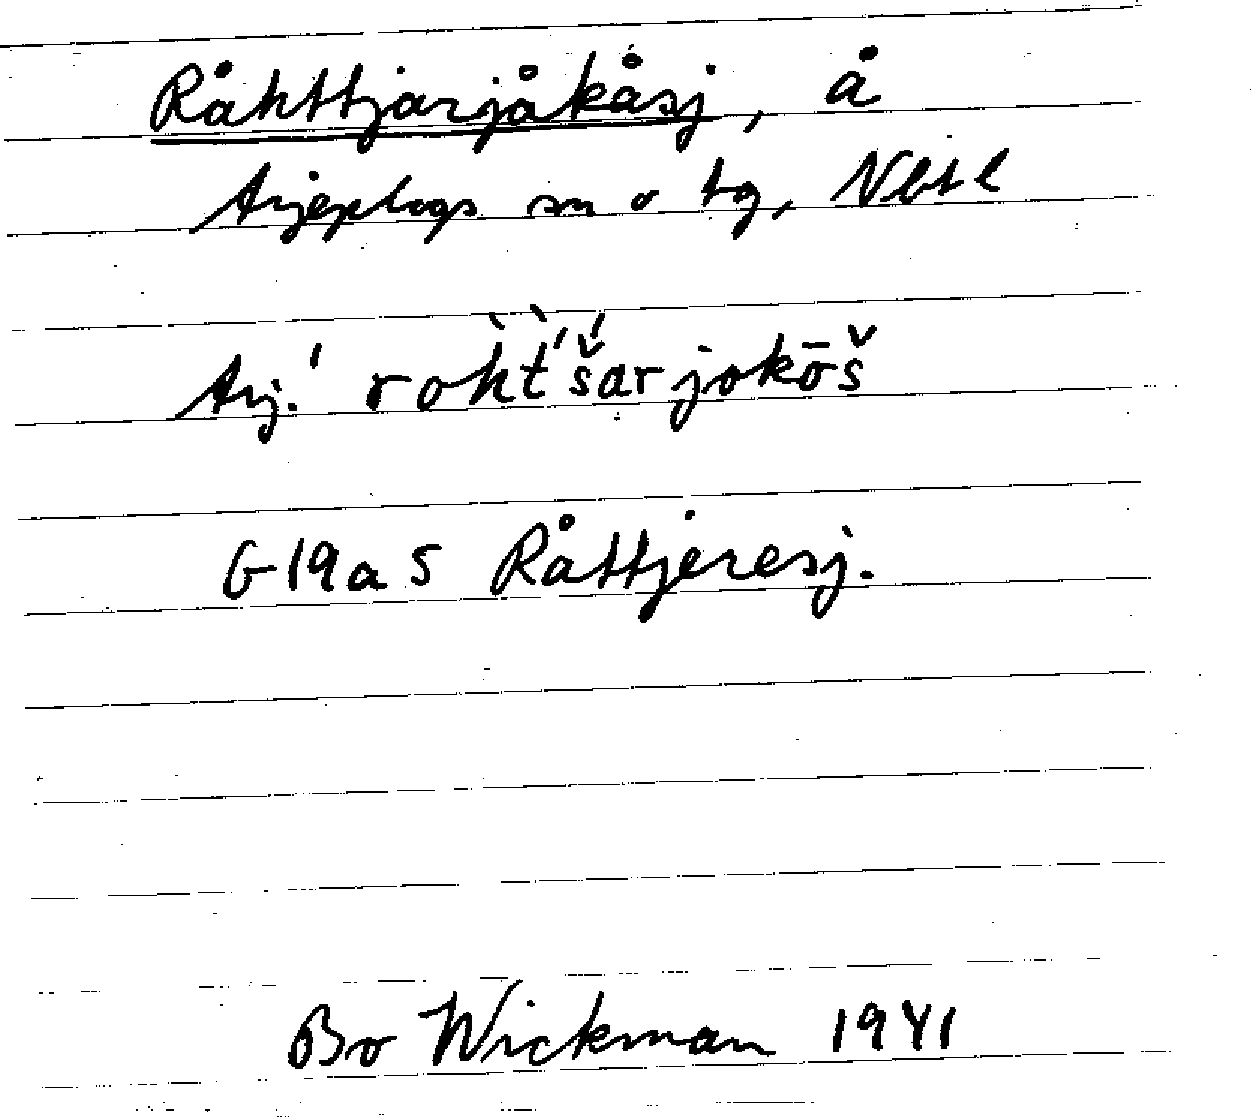 Råhttjarjåkåsj, å
Arjeplogs sn o tg, Nbtl
Arj.
G19a S Råttjeresj.
Bo Wickman 1941